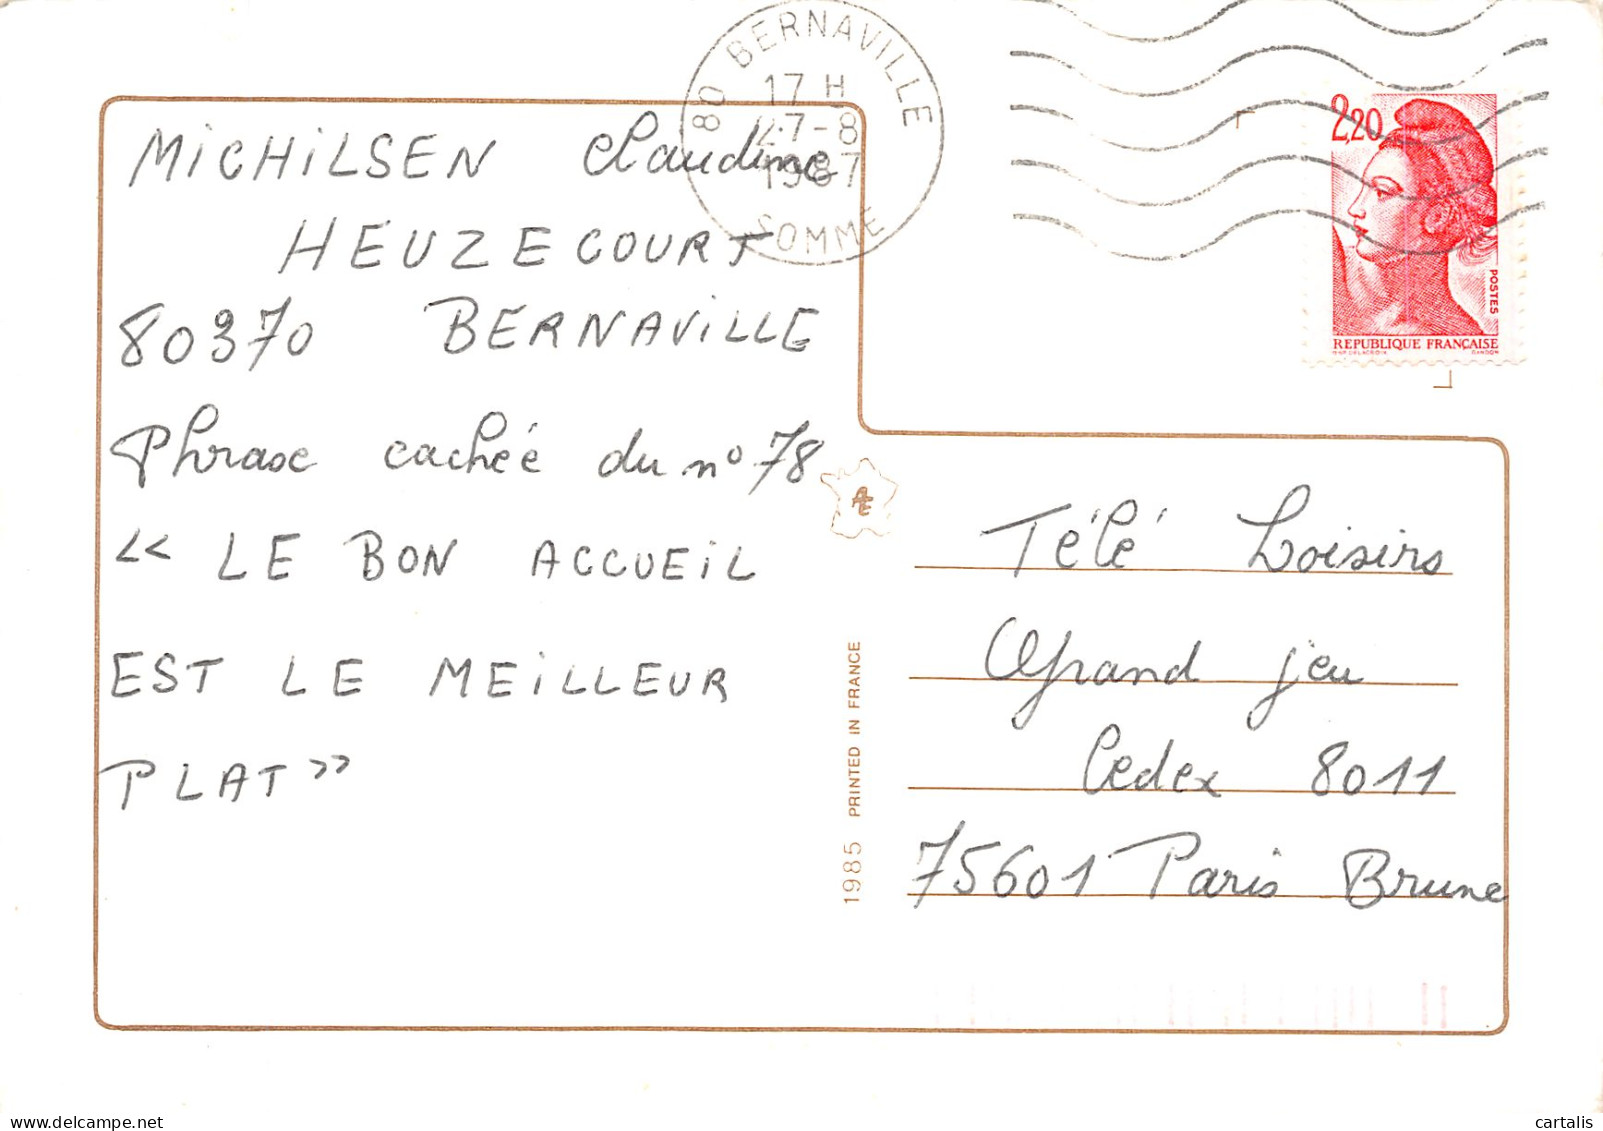 80 BERNAVILLE
17 H
27-8
1987
SOMME
2,20
POSTES
REPUBLIQUE FRANÇAISE
D'AP. DELACROIX GANDON
MiCHiLSEN Claudine
HEUZECOURT
80370 BERNAVILLE
Phrase cachée du n° 78
« LE BON ACCUEiL
EST LE MEiLLEUR
PLAT »
1985 PRINTED IN FRANCE
Télé Loisirs
Grand jeu
Cedex 8011
75601 Paris Brune
delcampe.net
cartalis